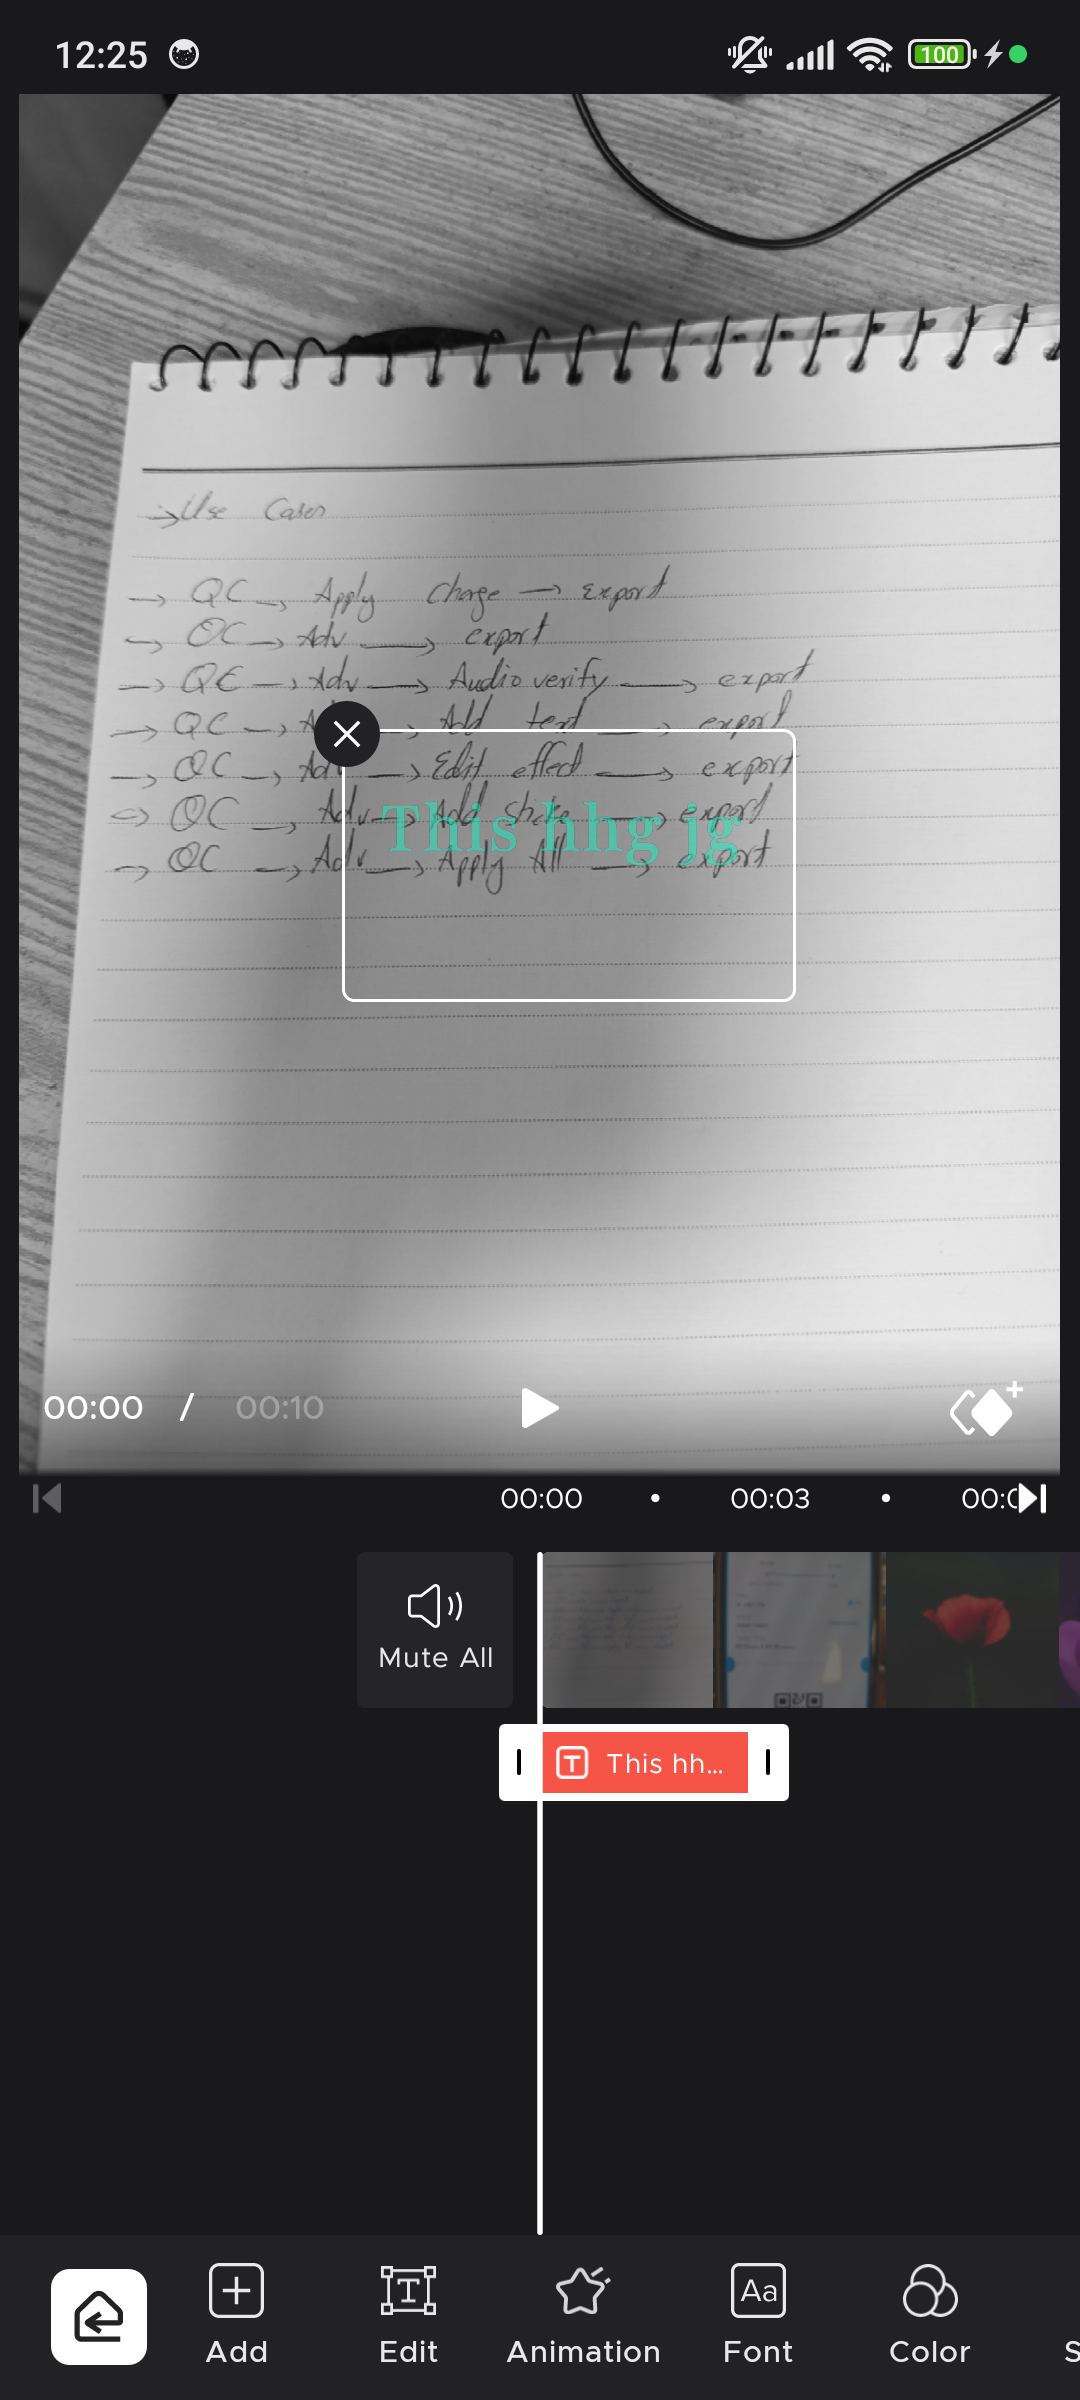 12:25
100
→ Use Cases
→ QC → Apply Change → export
→ QC → Adv → export
→ QC → Adv → Audio verify → export
→ QC → Add text → export
→ QC → Adv → Edit effect → export
→ QC → Adv → Add → export
→ QC → Adv → Apply All → export
This hhg jg
00:00 / 00:10
00:00 • 00:03 •
Mute All
This hh...
Add Edit Animation Font Color